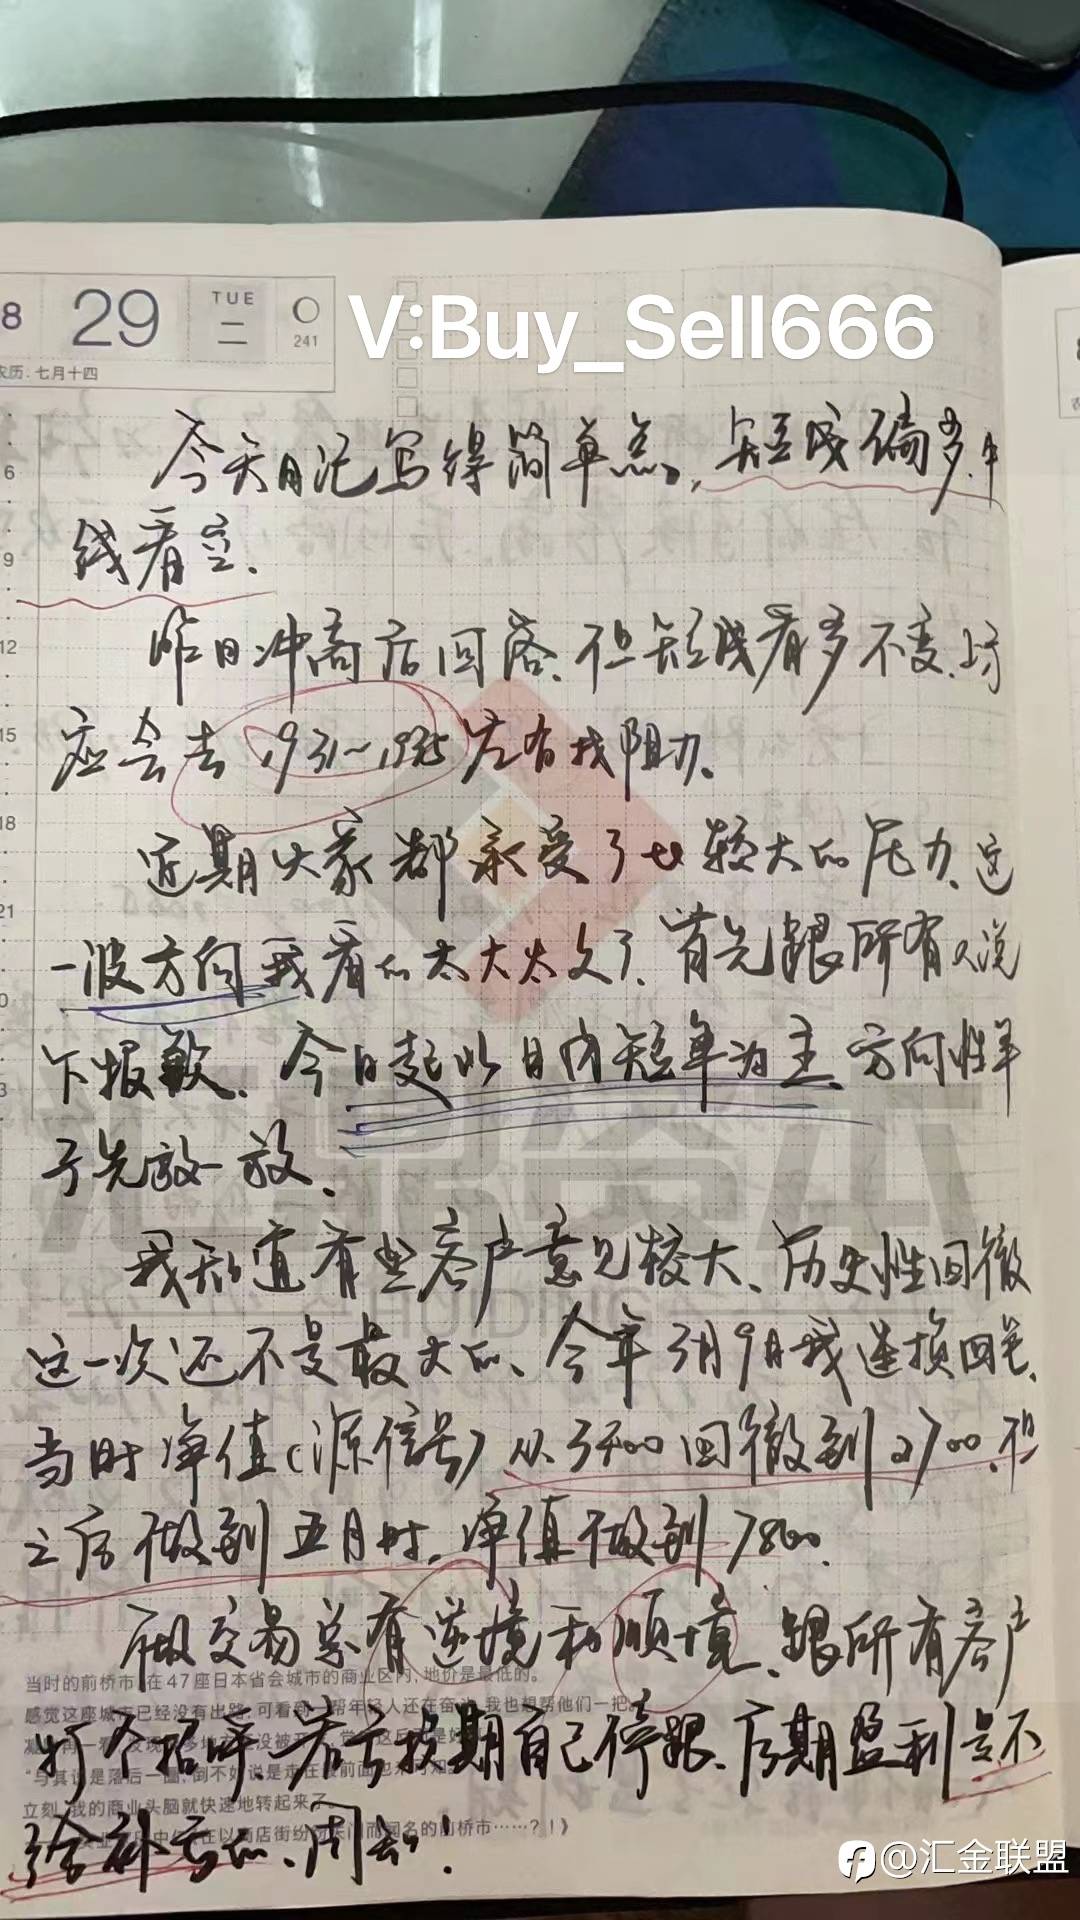 8 29 TUE 二 241
农历: 七月十四
V:Buy_Sell666
今天日记写得简单点,短线偏多,中
线看空.
昨日冲高后回落,但短线看多不变,上方
应会去1931~1935左右找阻力.
近期大家都承受了比较大的压力,这
一波方向我看的太大太久了.首先跟所有人说
下抱歉.今日起以日内短单为主,方向性单
子先放一放、
我知道有些客户意见较大、历史性回撤
这一次还不是最大的、今年3月9日我连损四笔、
当时净值(源信号)从3400回撤到2700,但
之后做到五月时,净值做到7800.
做交易总有逆境和顺境、跟所有客户
打个招呼、若亏损期自己停跟、后期盈利是不
给补亏的、周知!
当时的前桥市,在47座日本省会城市的商业区内,地价是最低的。
感觉这座城市已经没有出路,可看到一帮年轻人还在奋斗,我也想帮他们一把。
立刻,我的商业头脑就快速地转起来了
汇鼎资本
6
9
12
15
18
21
0
3
@汇金联盟